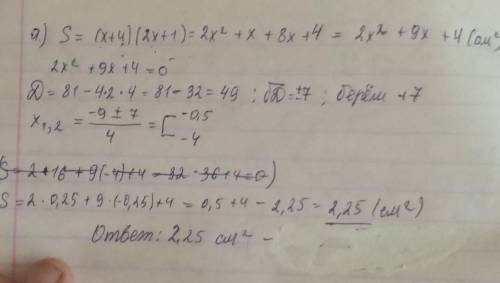 а) S = (x+4)(2x+1) = 2x² + x + 8x + 4 = 2x² + 9x + 4 (см²
2x² + 9x + 4 = 0
D = 81 - 4·2·4 = 81 - 32 = 49 ; √D = ±7 ; берём +7
x₁,₂ = (-9 ± 7)/4 = [-0,5 -4
S = 2·16 + 9(-4) + 4 = 32 - 36 + 4 = 0)
S = 2·0,25 + 9·(-0,25) + 4 = 0,5 + 4 - 2,25 = 2,25 (см²)
Ответ: 2,25 см² -